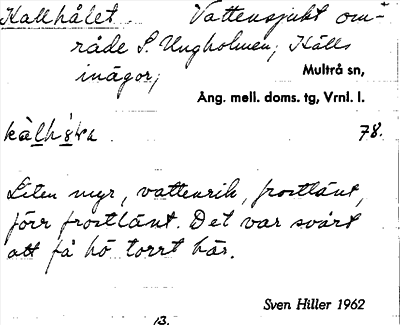 Kallhålet. Vattensjukt om-
råde S. Ungholmen, Källs
inägor,
Multrå sn,
Ång. mell. doms. tg, Vrnl. l.
78.
Liten myr, vattenrik, frostlänt,
förr frostlänt. Det var svårt
att få hö torrt här.
Sven Hiller 1962
13.